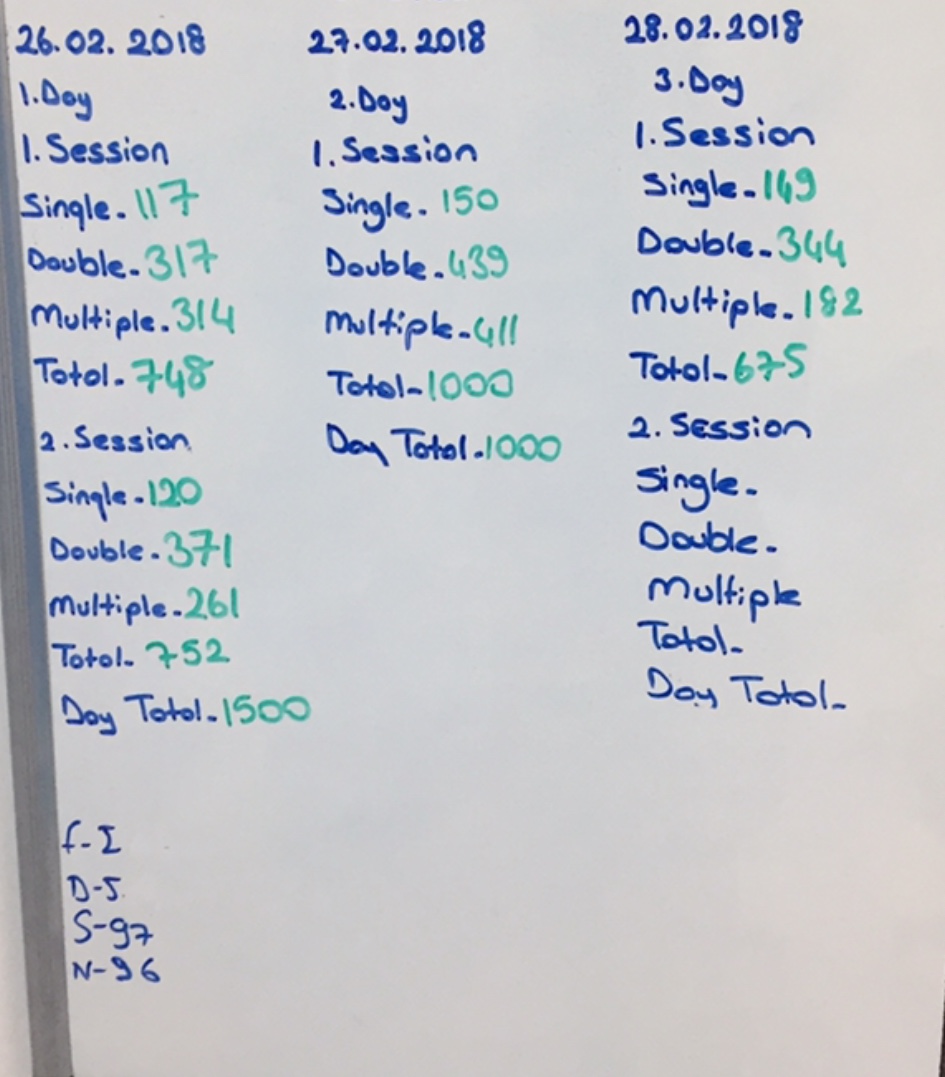 26.02.2018
1.Day
1.Session
Single-117
Double-317
Multiple-314
Total-748
2.Session
Single-120
Double-371
Multiple-261
Total-752
Day Total-1500
f-I
D-5
S-97
N-96
27.02.2018
2.Day
1.Session
Single-150
Double-439
Multiple-411
Total-1000
Day Total-1000
28.02.2018
3.Day
1.Session
Single-149
Double-344
Multiple-182
Total-675
2.Session
Single-
Double-
Multiple
Total-
Day Total-